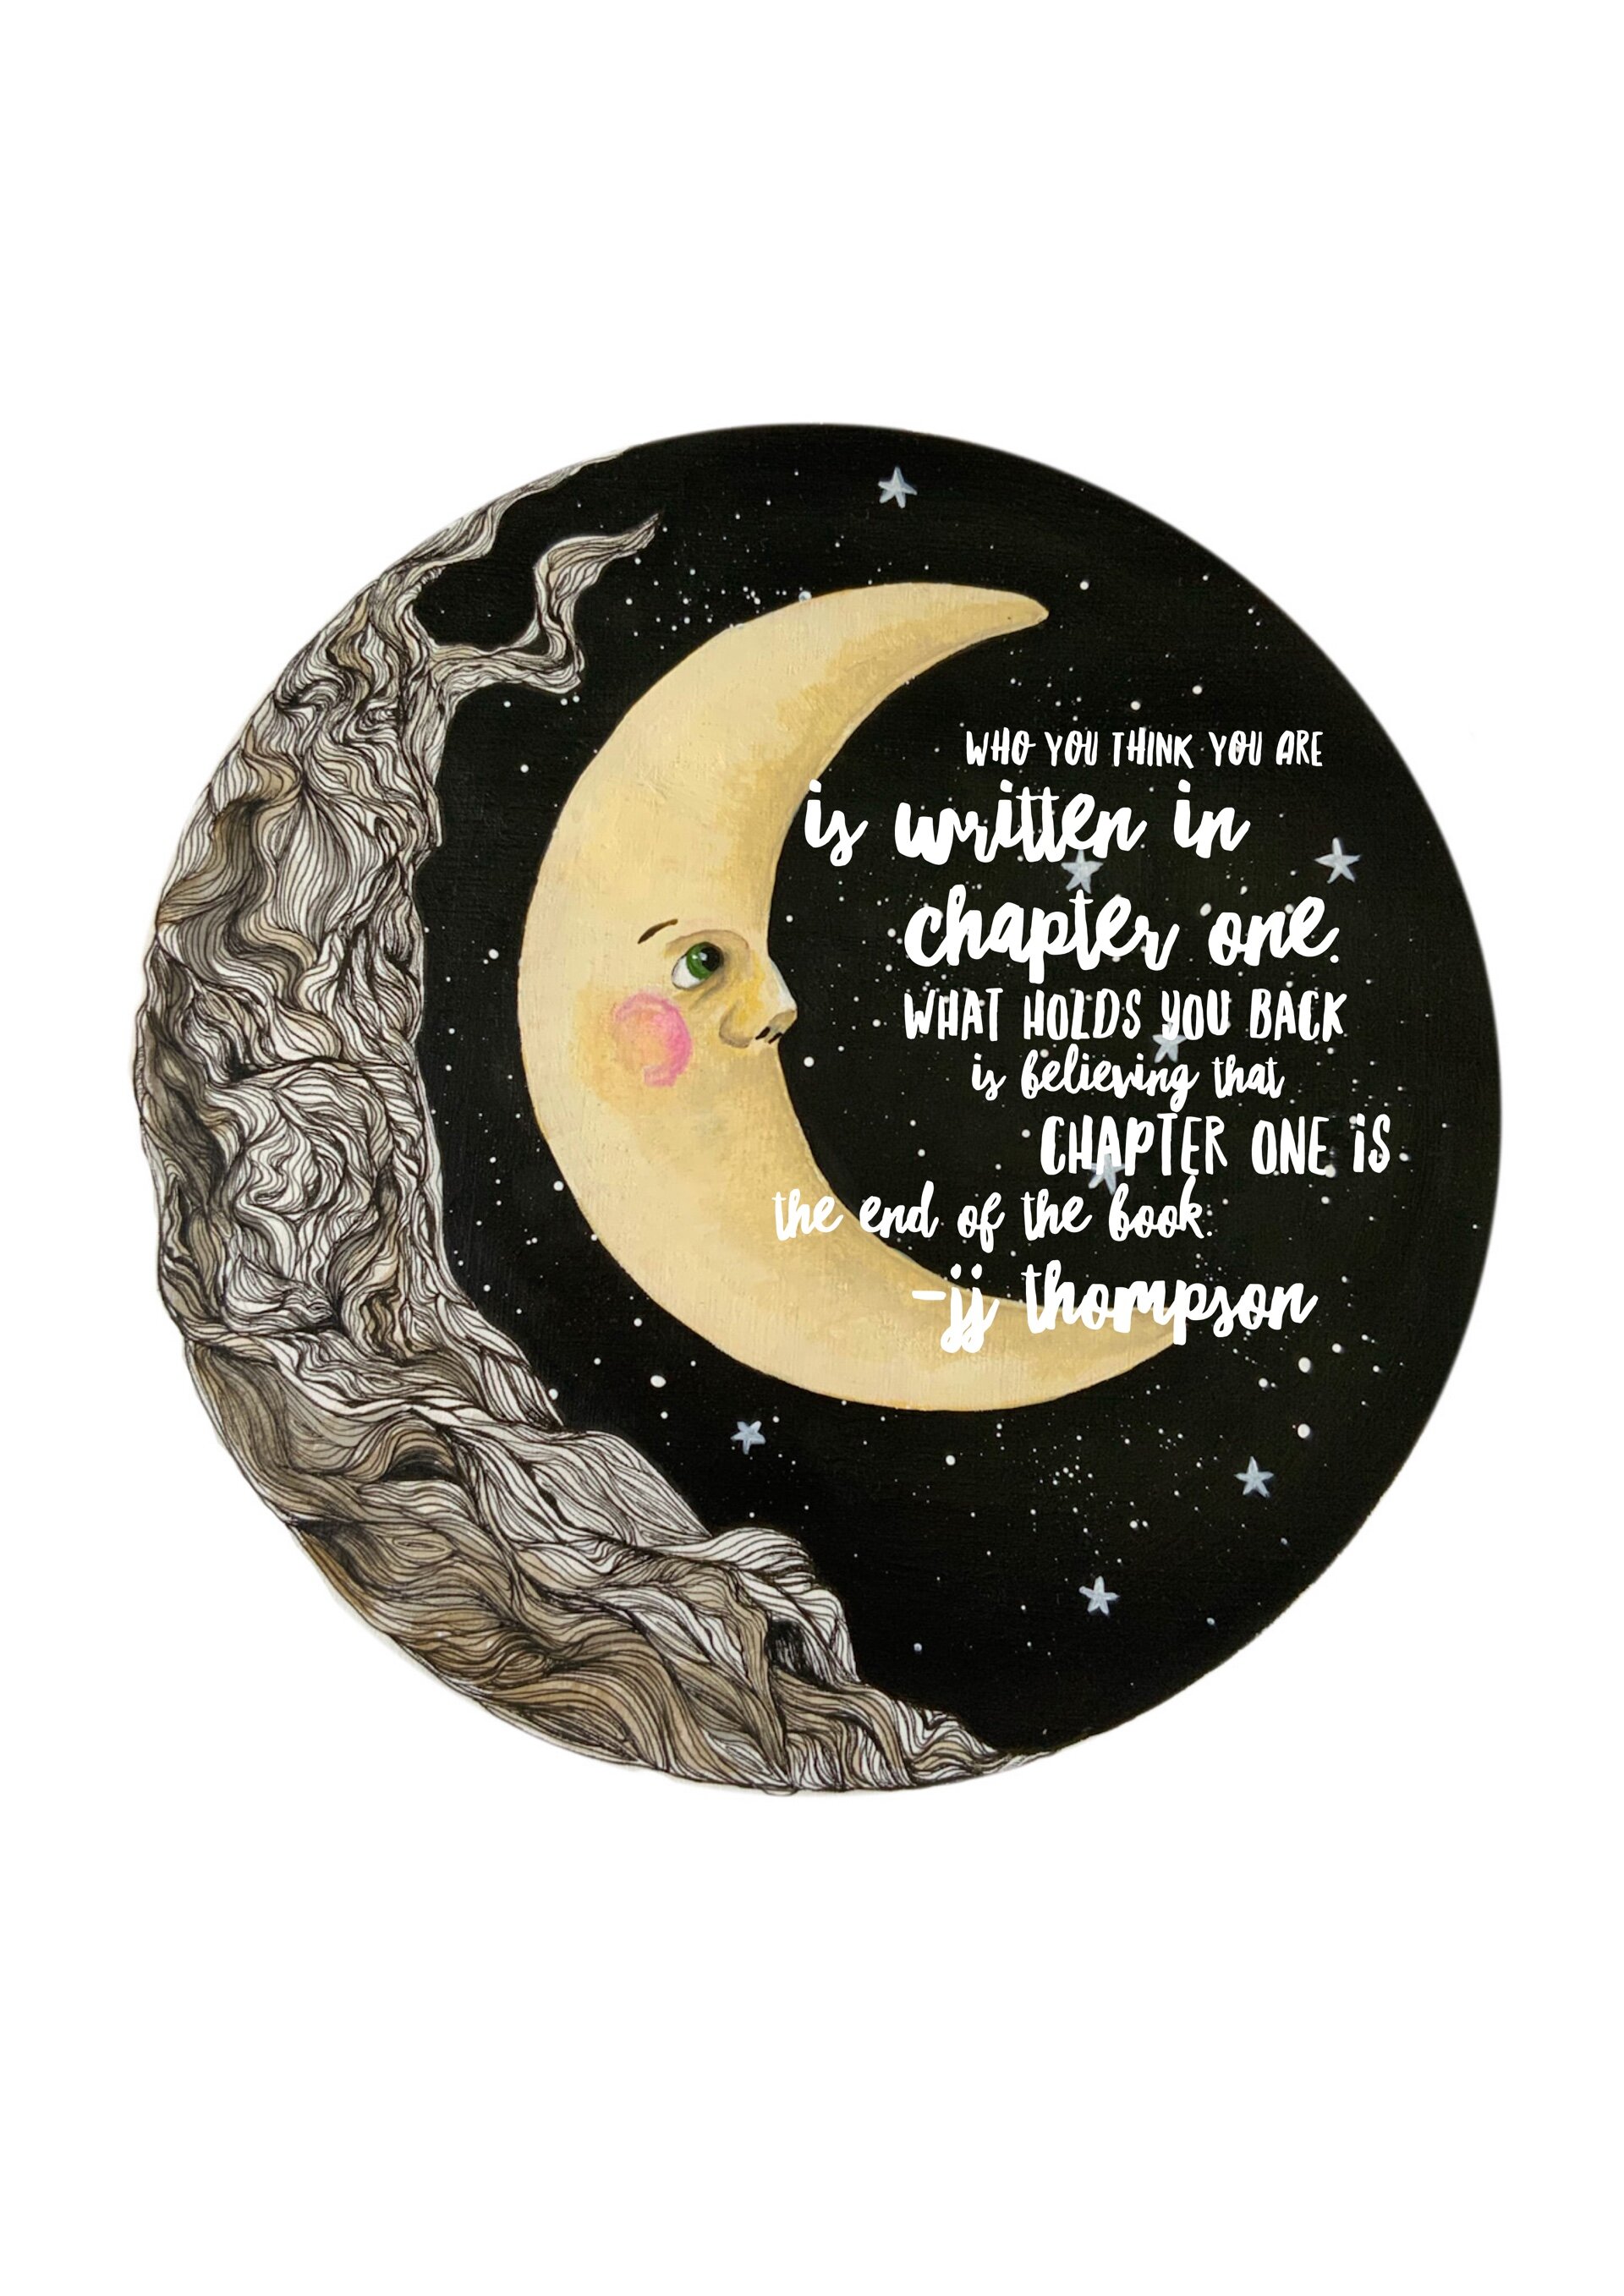 WHO YOU THINK YOU ARE
is written in
chapter one.
WHAT HOLDS YOU BACK
is believing that
CHAPTER ONE iS
the end of the book.
-jj thompson